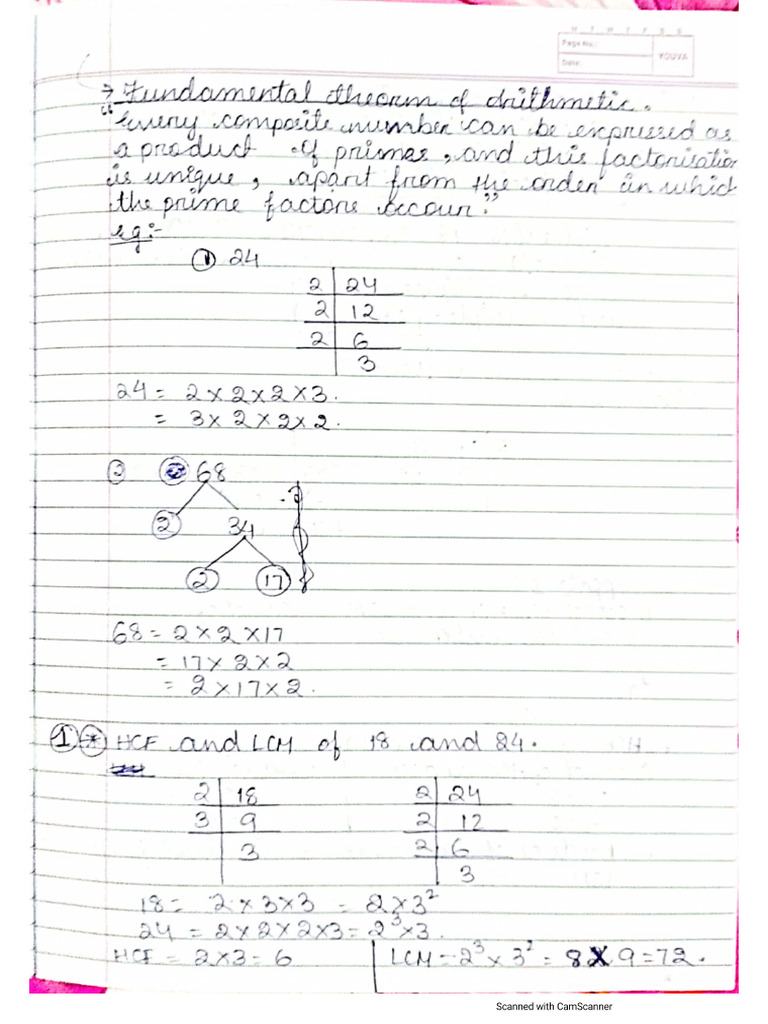 M T W T F S S
Page No.:
Date:
YOUVA
→ Fundamental theorm of Arithmetic.
"Every composite number can be expressed as
a product of primes, and this factorisation
is unique, apart from the order in which
the prime factors occour."
eg:-
① 24
2 | 24
2 | 12
2 | 6
3
24 = 2×2×2×3.
= 3×2×2×2.
② 68
2 34
2 17
68 = 2×2×17
= 17×2×2
= 2×17×2.
① * HCF and LCM of 18 and 24.
2 | 18 2 | 24
3 | 9 2 | 12
3 2 | 6
3
18 = 2×3×3 = 2×3²
24 = 2×2×2×3 = 2³×3.
HCF = 2×3 = 6 | LCM = 2³×3² = 8×9 = 72.
Scanned with CamScanner